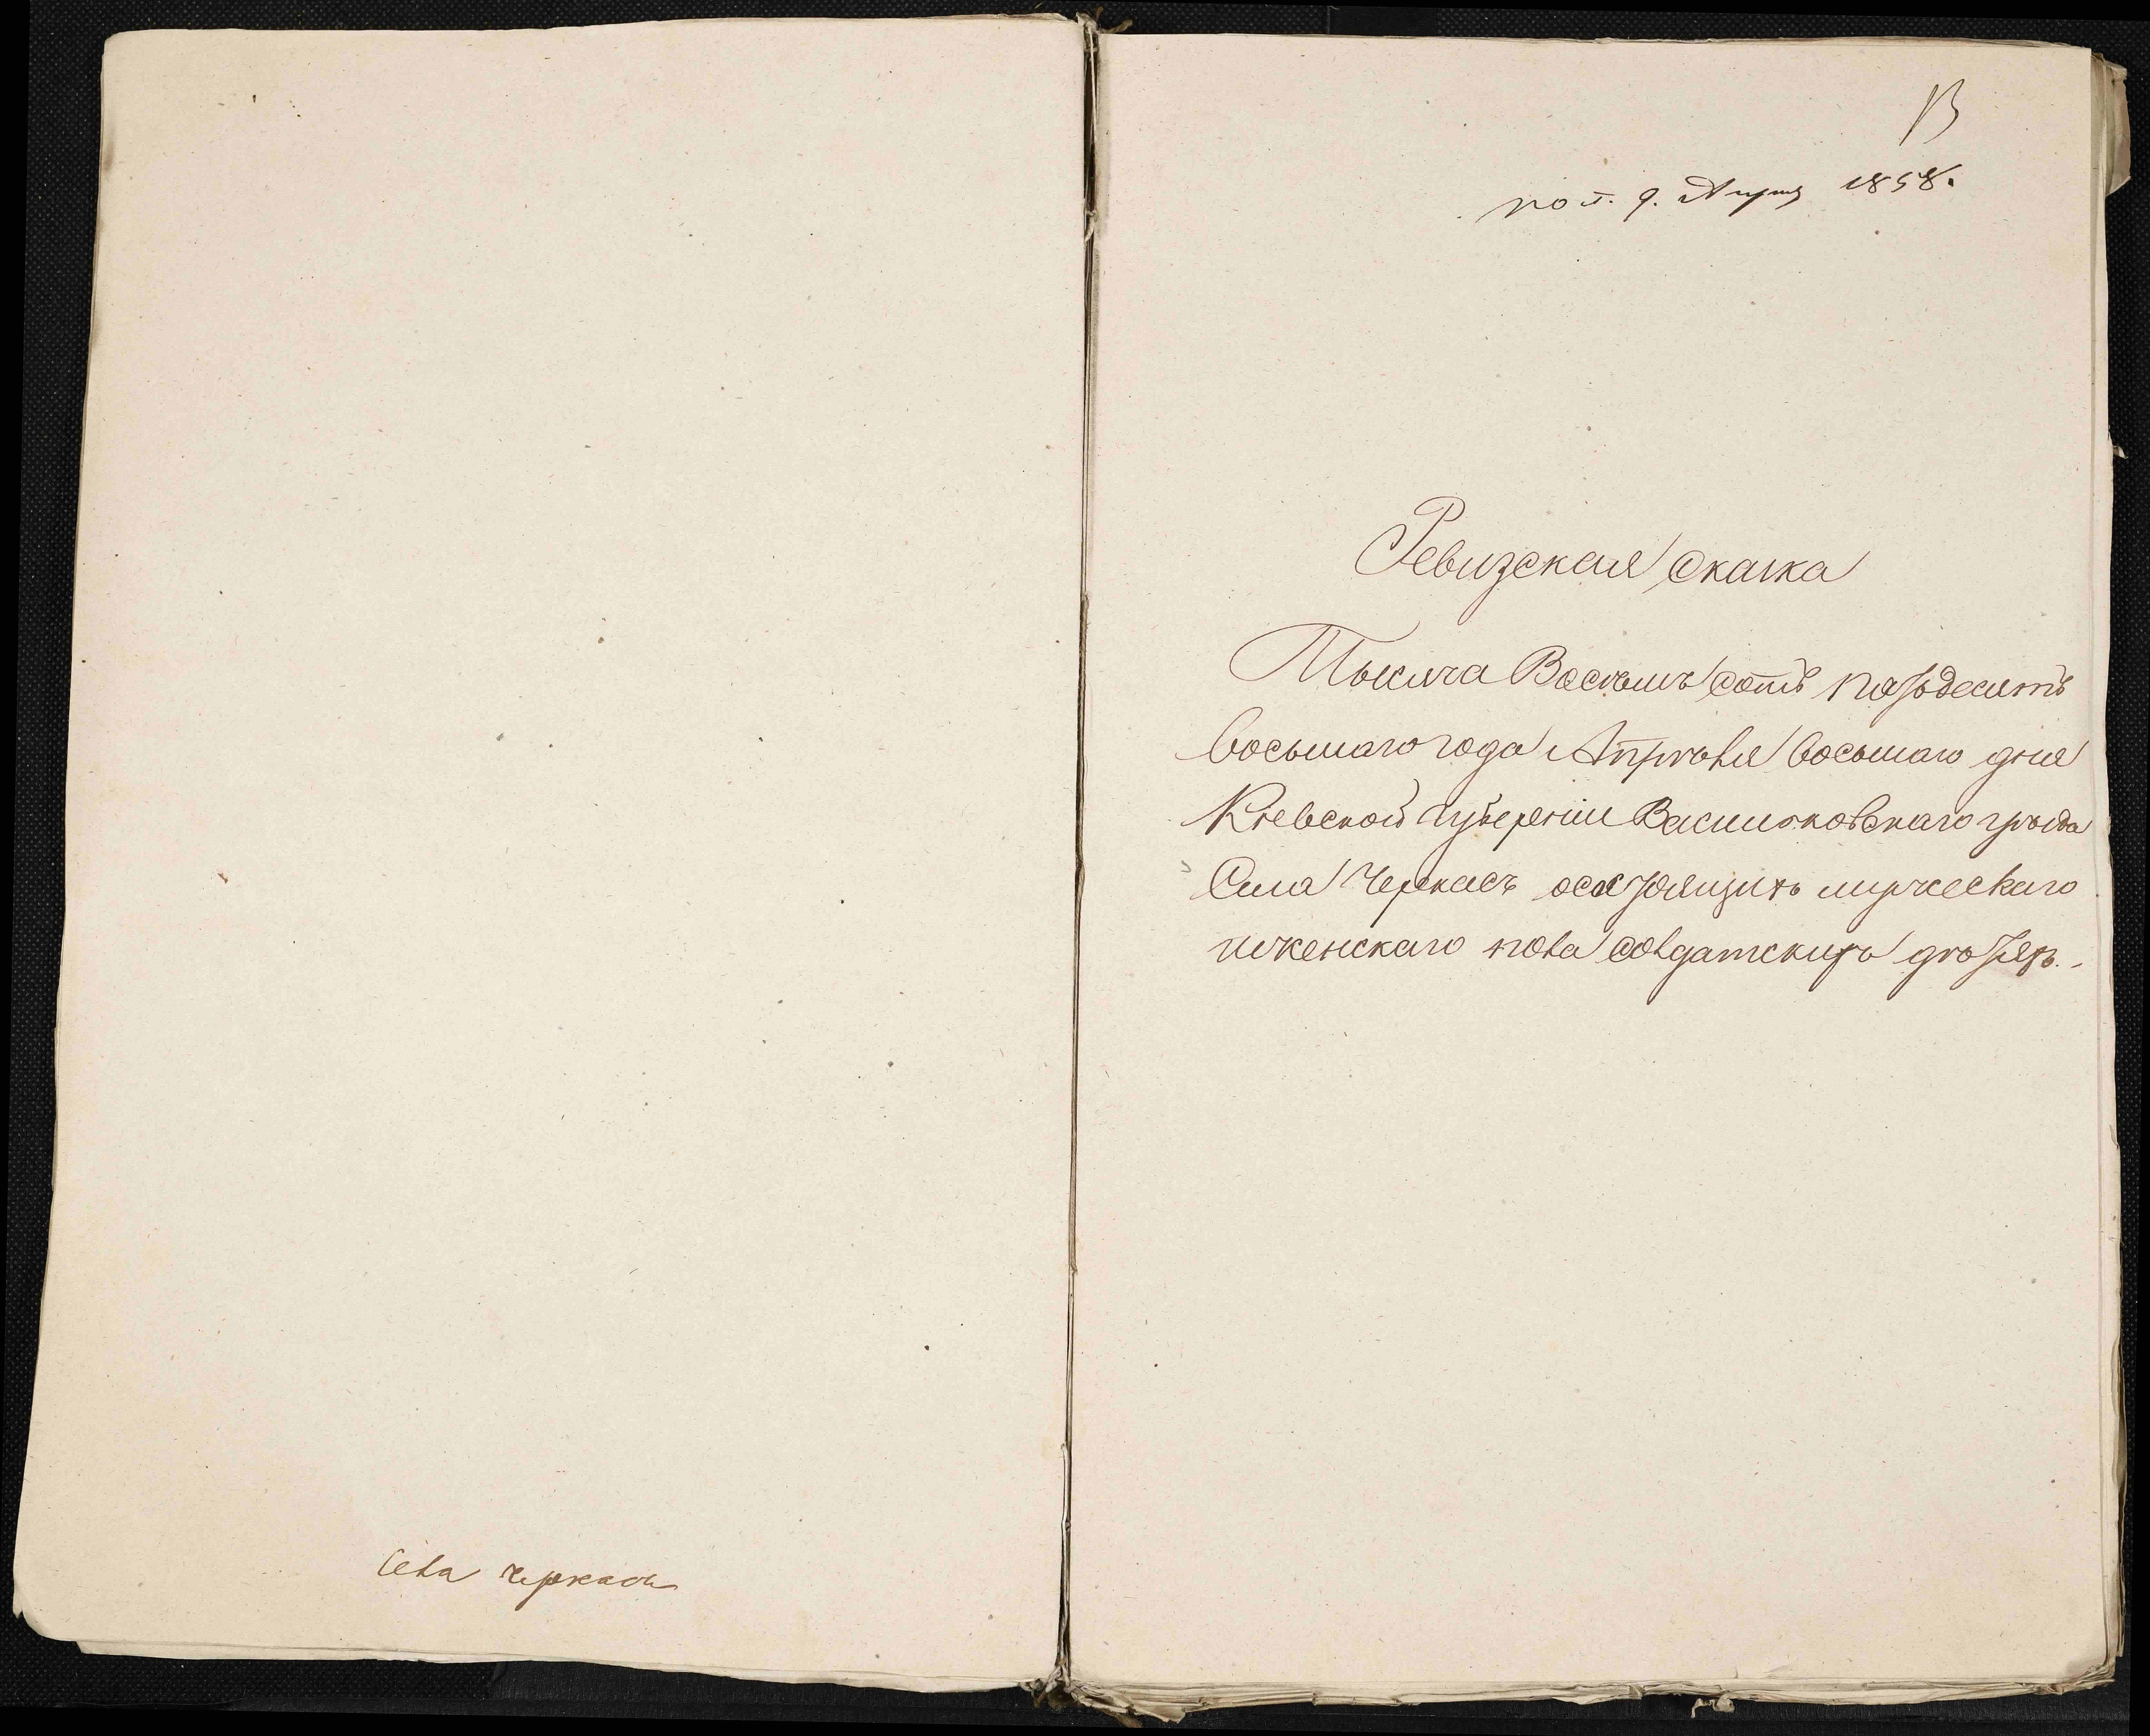 Села Черкасъ
13
пол. 9. Апрля 1858.
Ревизская скаска
Тысяча Восѣмъ сотъ пятьдесятъ
восьмаго года Апрѣля восьмаго дня
Кіевской губерніи Васильковскаго уѣзда
Села Черкасъ о состоящихъ мужескаго
и женскаго пола солдатскихъ дѣтяхъ.